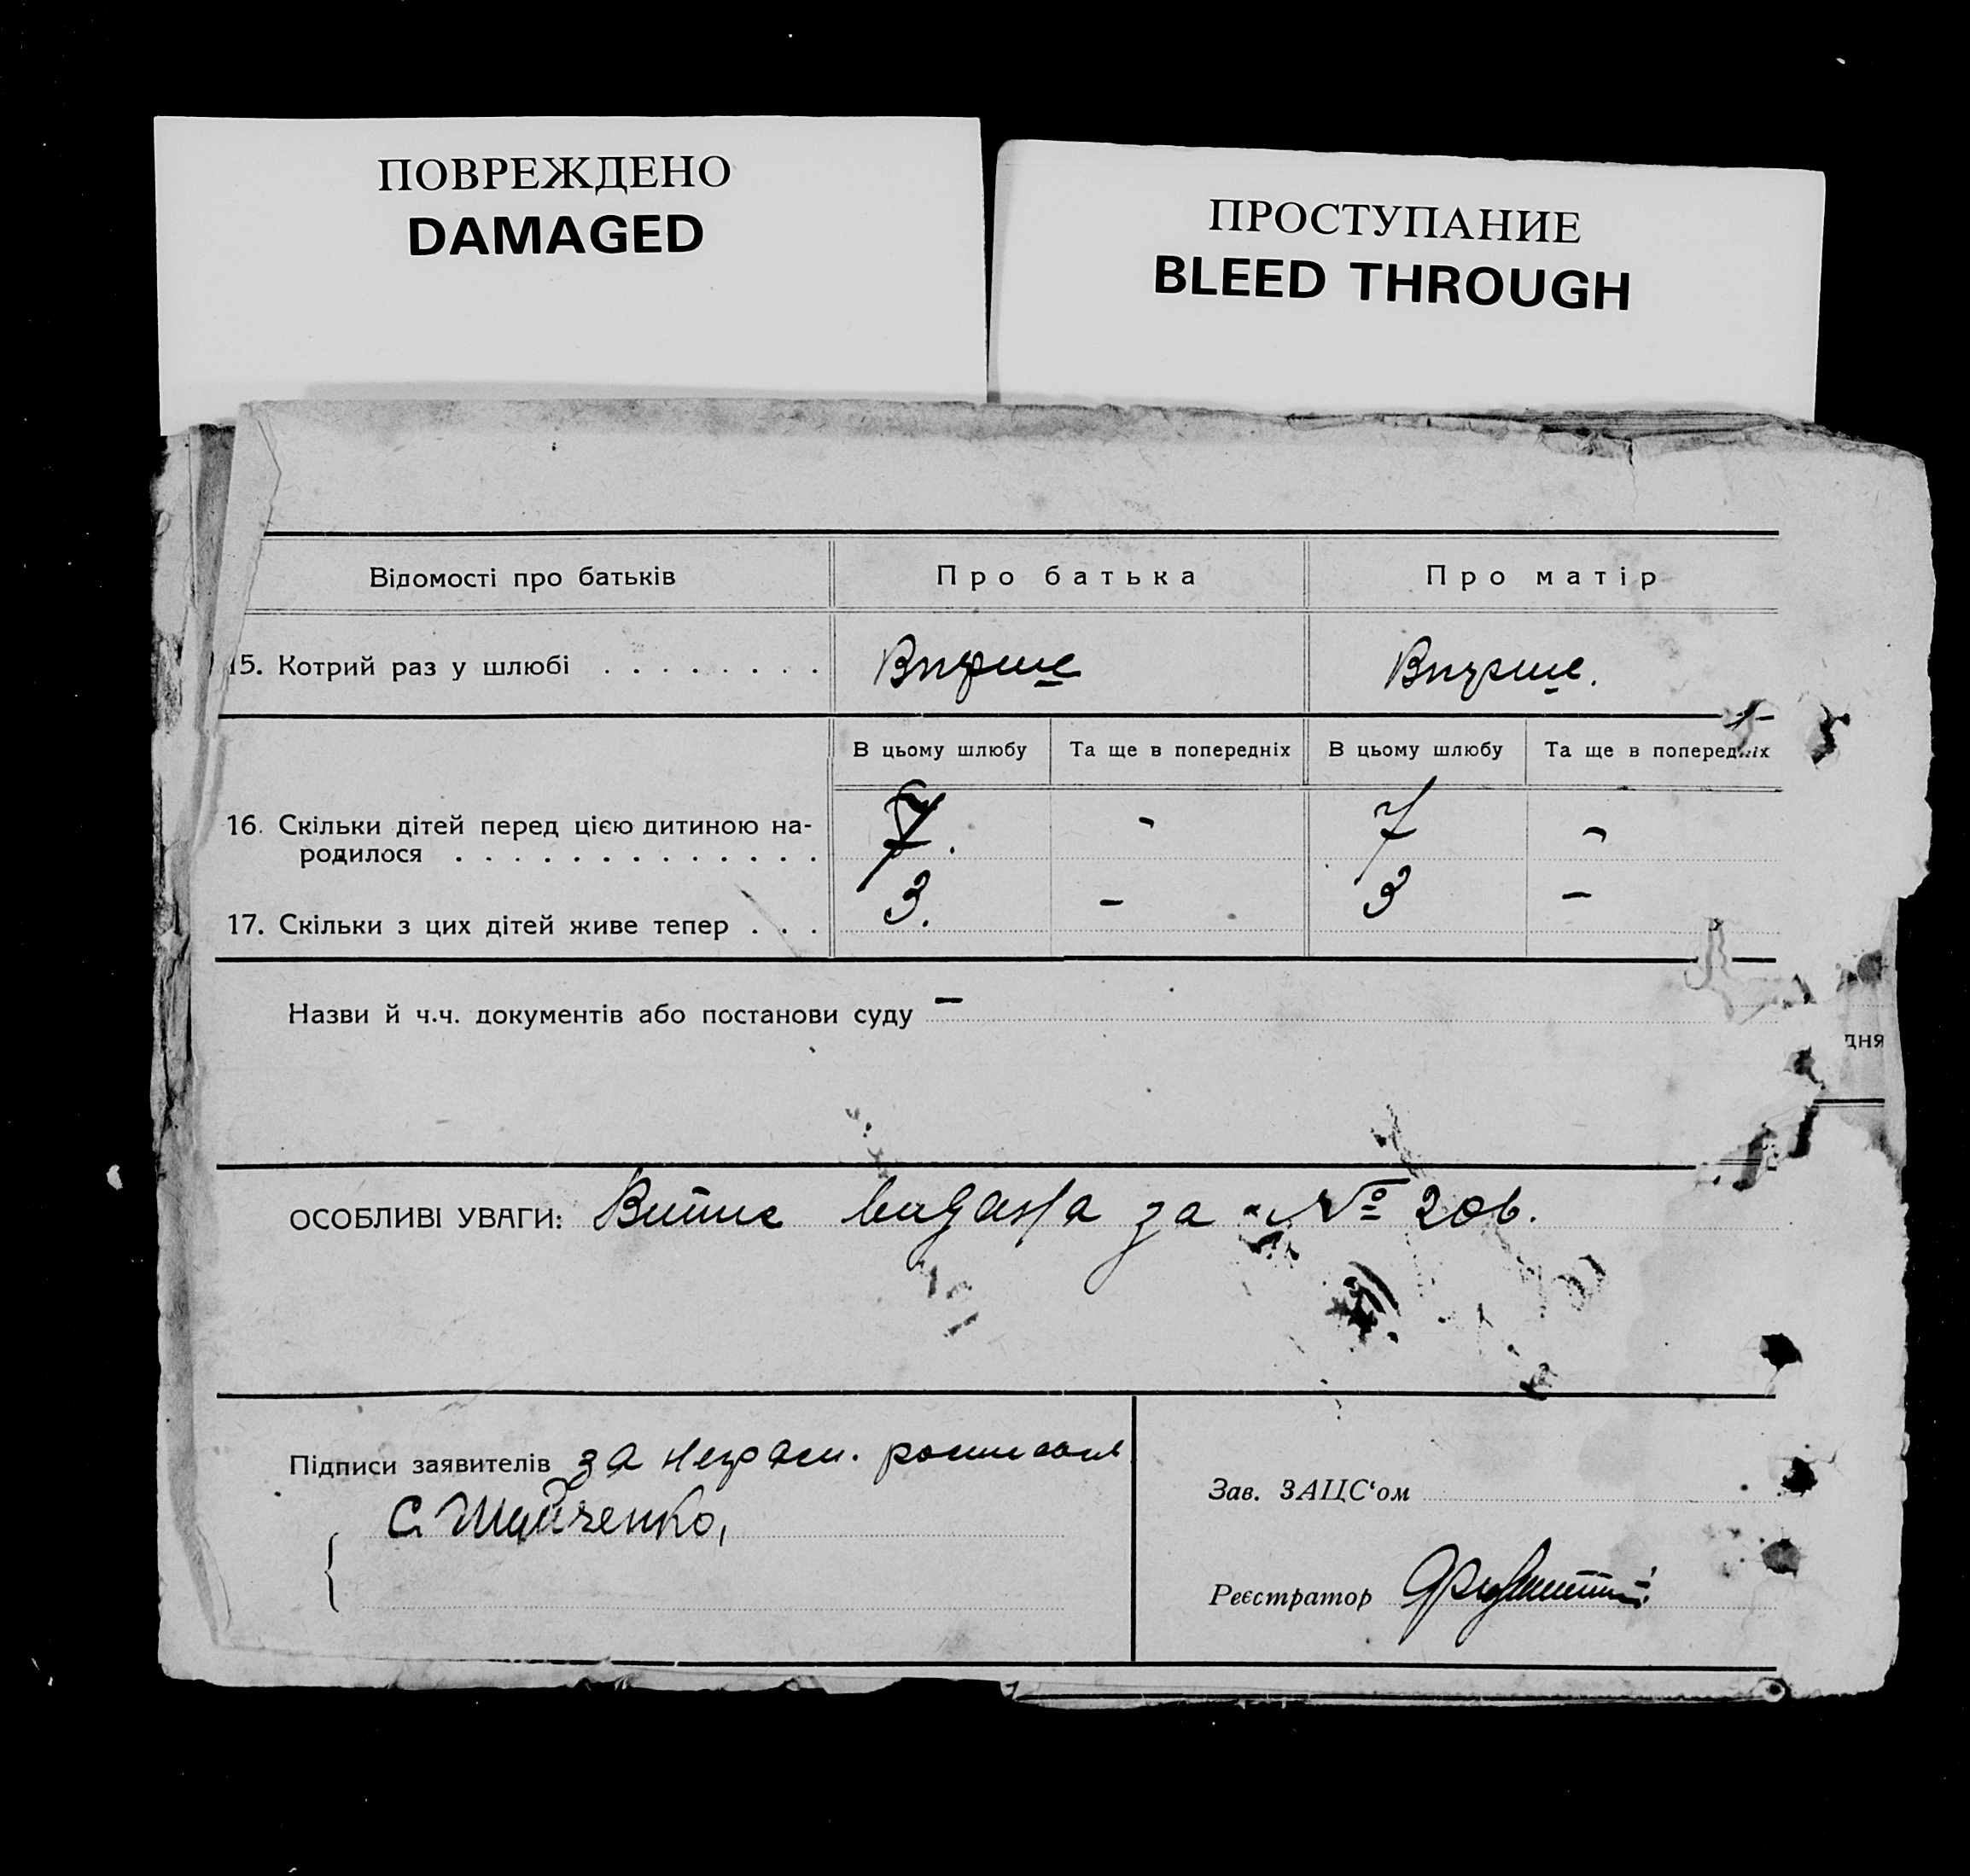 ПОВРЕЖДЕНО
DAMAGED
ПРОСТУПАНИЕ
BLEED THROUGH
Відомості про батьків Про батька Про матір
15. Котрий раз у шлюбі . . . . . . . . Вперше Вперше.
В цьому шлюбу Та ще в попередніх В цьому шлюбу Та ще в попередніх
16. Скільки дітей перед цією дитиною на-
родилося . . . . . . . . . . . . . 7. - 7 -
17. Скільки з цих дітей живе тепер . . . 3. - 3 -
Назви й ч.ч. документів або постанови суду -
дня
ОСОБЛИВІ УВАГИ: Випис видана за № 206.
Підписи заявителів за неграм.
С.
Зав. ЗАЦС‘ом
Реєстратор